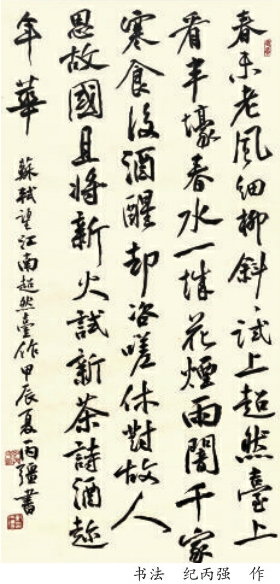 春未老風細柳斜〻試上超然臺上
看半壕春水一城花煙雨闇千家
寒食後酒醒却咨嗟休對故人
思故國且將新火試新茶詩酒趁
年華
蘇軾望江南超然臺作甲辰夏丙彊書
书法 纪丙强 作